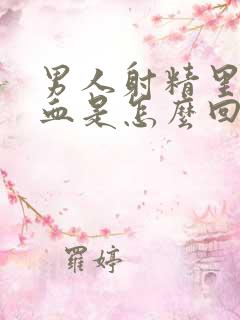 男人射精里
血是怎麼回
羅婷